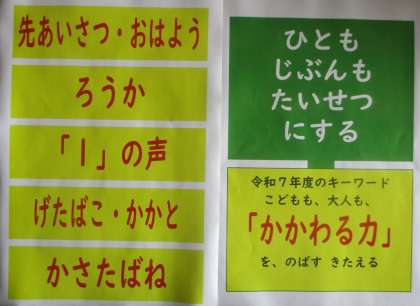 先あいさつ・おはよう
ろうか
「1」の声
げたばこ・かかと
かさたばね
ひとも
じぶんも
たいせつ
にする
令和7年度のキーワード
こどもも、大人も、
「かかわる力」
を、のばす きたえる